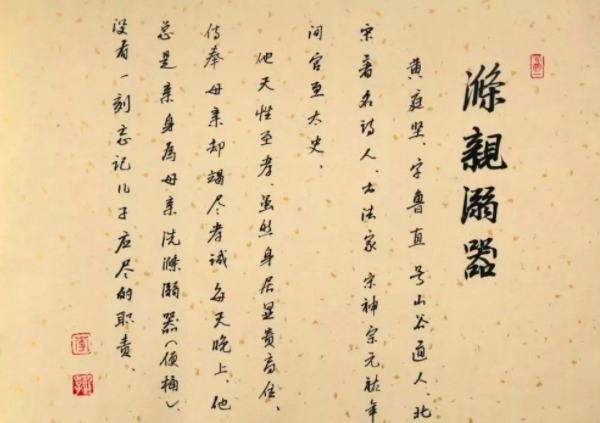 滌親溺器
黄庭坚、字鲁直 号山谷道人、北
宋著名诗人、书法家 宋神宗元祐年
间官至太史、
他天性至孝、虽然身居显贵高位、
侍奉母亲却竭尽孝诚 每天晚上、他
总是亲身為母亲洗滌溺器(便桶)、
没有一刻忘记儿子应尽的职责、